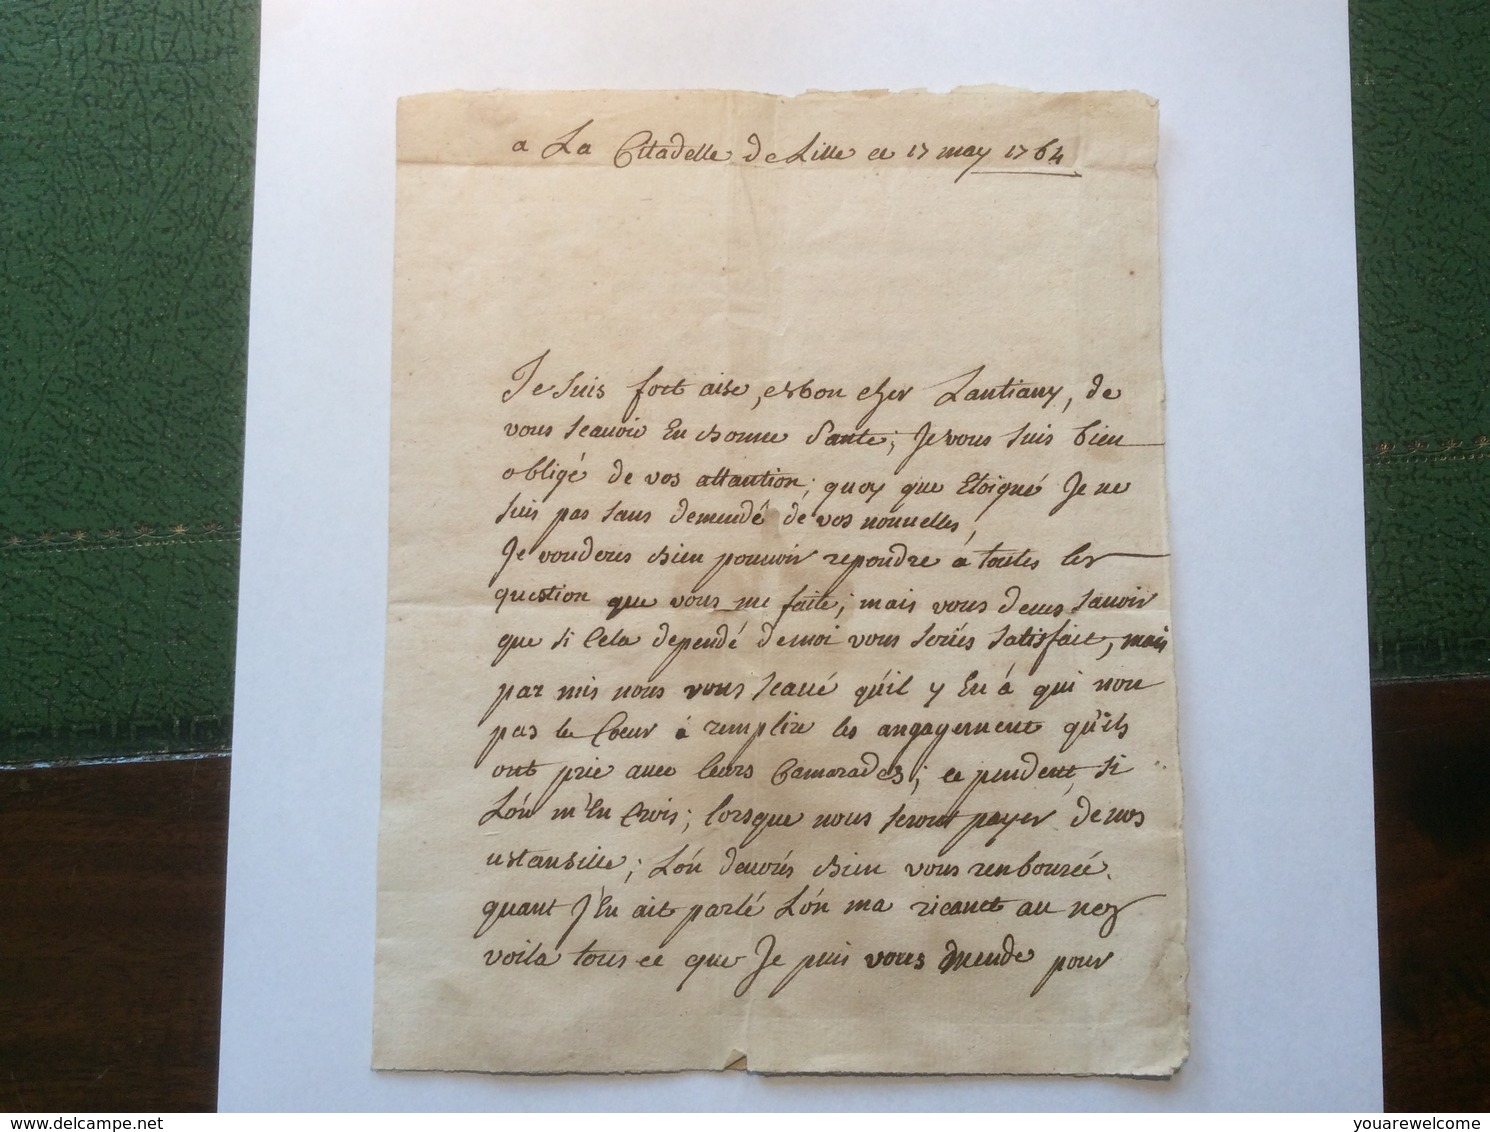 a La Cittadelle de Lille ce 17 may 1764
Je suis fort aise, mon cher Lantiany, de
vous scauoir En bonne Sante; Je vous suis bien
obligé de vos attantion; quoy que Eloigné Je ne
suis pas sans demendé de vos nouuelles,
Je vouderes bien pouuoir repondre à toutes les
question que vous me faite; mais vous deues sauoir
que si Cela dependé de moi vous seriés satisfait, mais
par mis nous vous scaué qu'il y En á qui non
pas le Coeur á remplire les angagement qu'ils
ont prie auec leurs Camarades; ce pendent, si
L'on m'En Crois; lorsque nous seront payer de nos
ustansille; L'on deuoués bien vous renbourcé.
quant J'En ait parlé L'on ma ricanet au nez
voila tous ce que Je puis vous mende pour
delcampe.net
youarewelcome